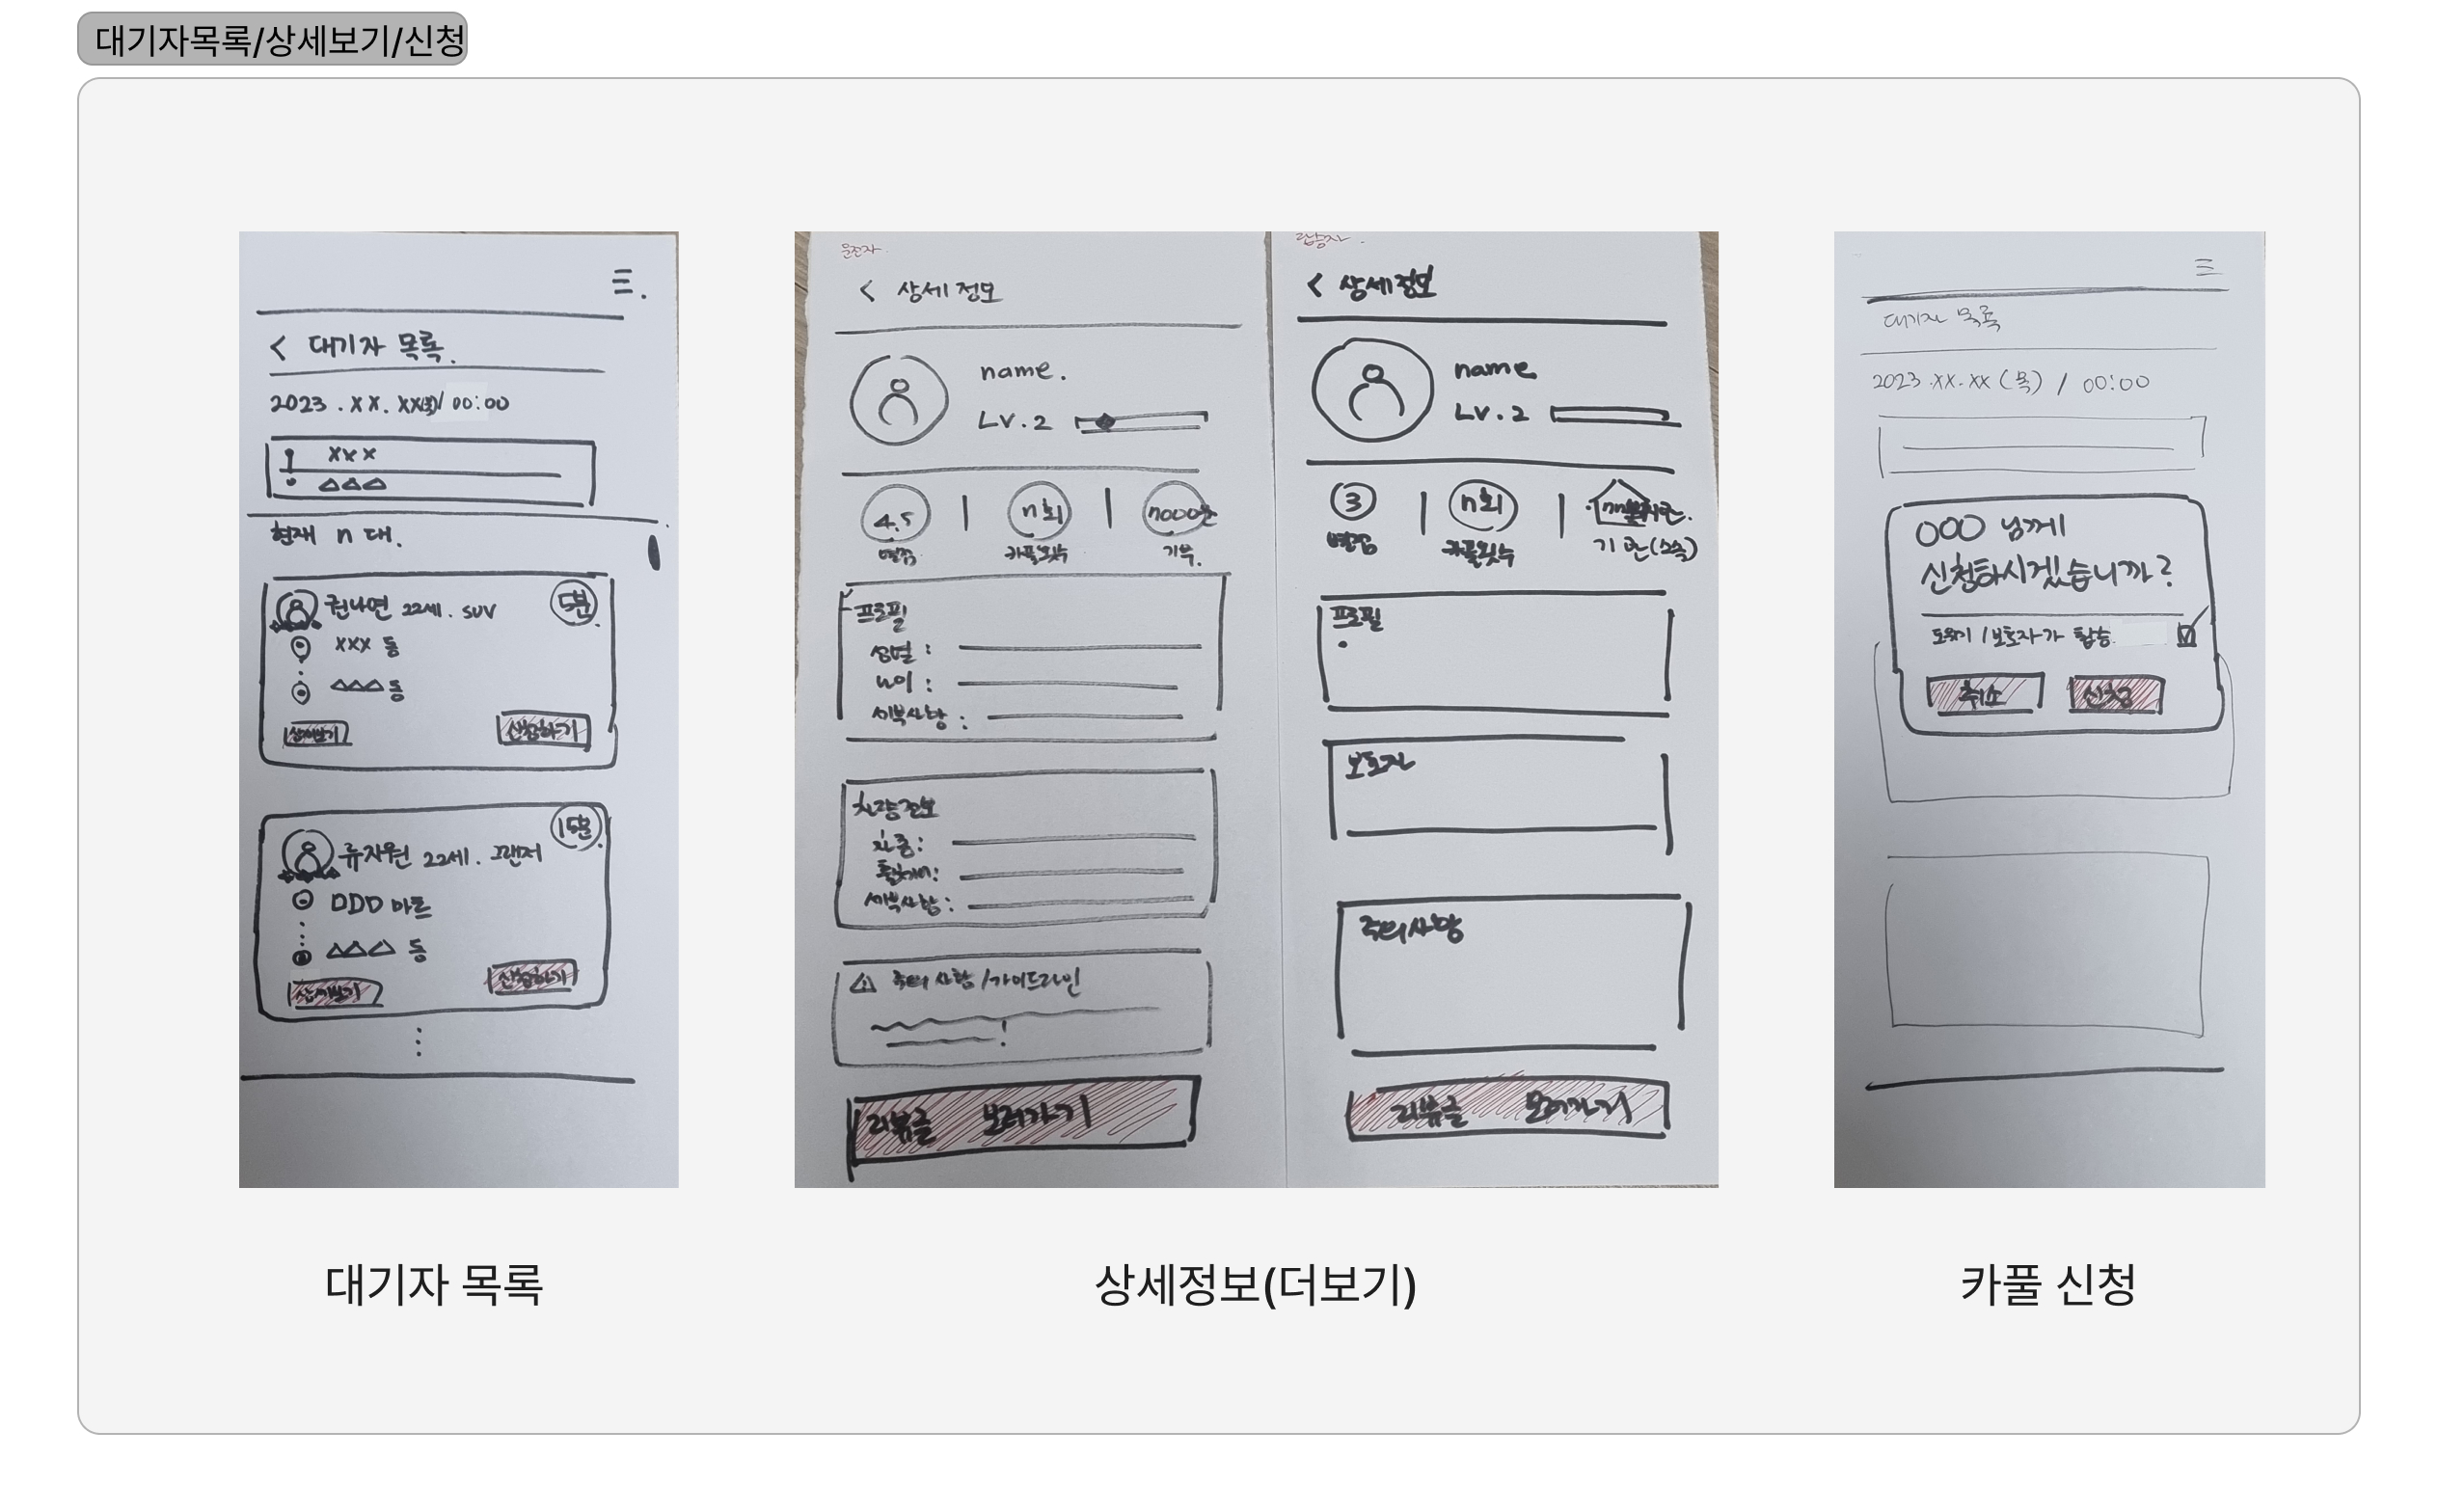 대기자목록/상세보기/신청
< 대기자 목록.
2023.XX.XX(목)/00:00
XXX
△△△
현재 n 대.
권나연 22세. SUV
5분
XXX 동
△△△동
상세보기
신청하기
류자원 22세. 그랜저
15분
□□□ 마트
△△△ 동
상세보기
신청하기
운전자.
< 상세정보
name.
Lv.2
4.5 | n회 |
별점 카풀횟수 기부.
프로필
성별 :
나이 :
세부사항 :
차량정보
차종:
세부사항:
주의 사항/가이드라인
리뷰글 보러가기
탑승자.
< 상세정보
name
Lv.2
3 | n회 |
별점 카풀횟수 기관(소속)
프로필
보호자
주의사항
리뷰글 보러가기
대기자 목록
2023.XX.XX (목) / 00:00
OOO 님께
신청하시겠습니까?
도우미/보호자가 탑승
취소 신청
대기자 목록
상세정보(더보기)
카풀 신청